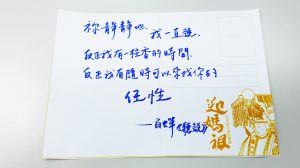 祢靜靜地 我一直說
反正我有一柱香的時間
反正我有隨時可以來找你的
任性
——白蟬《聽說》
迎媽祖